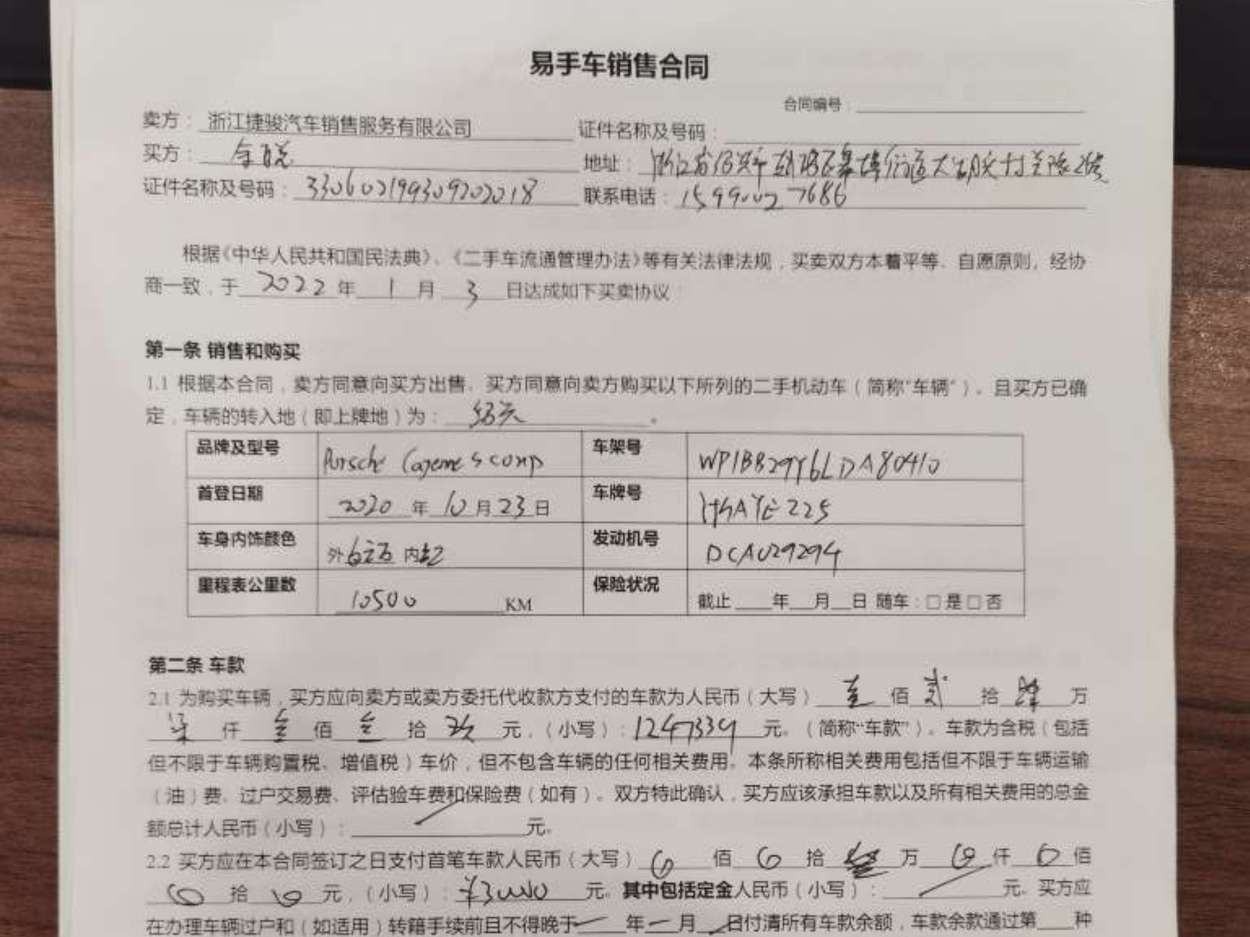 易手车销售合同
合同编号：
卖方：浙江捷骏汽车销售服务有限公司 证件名称及号码：
买方： 地址：浙江省绍兴市
证件名称及号码：330602199309202018 联系电话：15990027686
根据《中华人民共和国民法典》、《二手车流通管理办法》等有关法律法规，买卖双方本着平等、自愿原则，经协
商一致，于 2022 年 1 月 3 日达成如下买卖协议
第一条 销售和购买
1.1 根据本合同，卖方同意向买方出售、买方同意向卖方购买以下所列的二手机动车（简称“车辆”）。且买方已确
定，车辆的转入地（即上牌地）为：绍兴。
品牌及型号 Porsche Cayenne S coup 车架号 WP1BB29Y6LDA80410
首登日期 2020 年 10 月 23 日 车牌号 浙AYE225
车身内饰颜色 外白 内红 发动机号 DCA029294
里程表公里数 10500 KM 保险状况 截止 年 月 日 随车：□是□否
第二条 车款
2.1 为购买车辆，买方应向卖方或卖方委托代收款方支付的车款为人民币（大写） 壹 佰 贰 拾 肆 万
柒 仟 叁 佰 叁 拾 玖 元，（小写）：1247339 元。（简称“车款”）。车款为含税（包括
但不限于车辆购置税、增值税）车价，但不包含车辆的任何相关费用。本条所称相关费用包括但不限于车辆运输
（油）费、过户交易费、评估验车费和保险费（如有）。双方特此确认，买方应该承担车款以及所有相关费用的总金
额总计人民币（小写）： 元。
2.2 买方应在本合同签订之日支付首笔车款人民币（大写） 佰 拾 万 仟 佰
拾 元，（小写）： 元。其中包括定金人民币（小写）： 元。买方应
在办理车辆过户和（如适用）转籍手续前且不得晚于 年 月 日付清所有车款余额，车款余款通过第 种